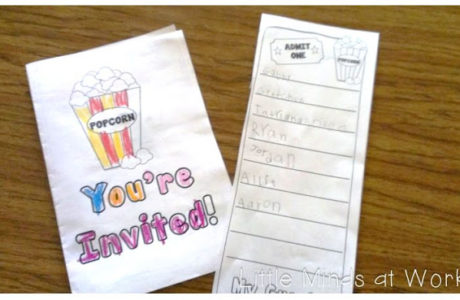 POPCORN
You're
Invited!
ADMIT
ONE
POPCORN
Ryan
Jordan
Allie
Aaron
My
Little Minds at Work